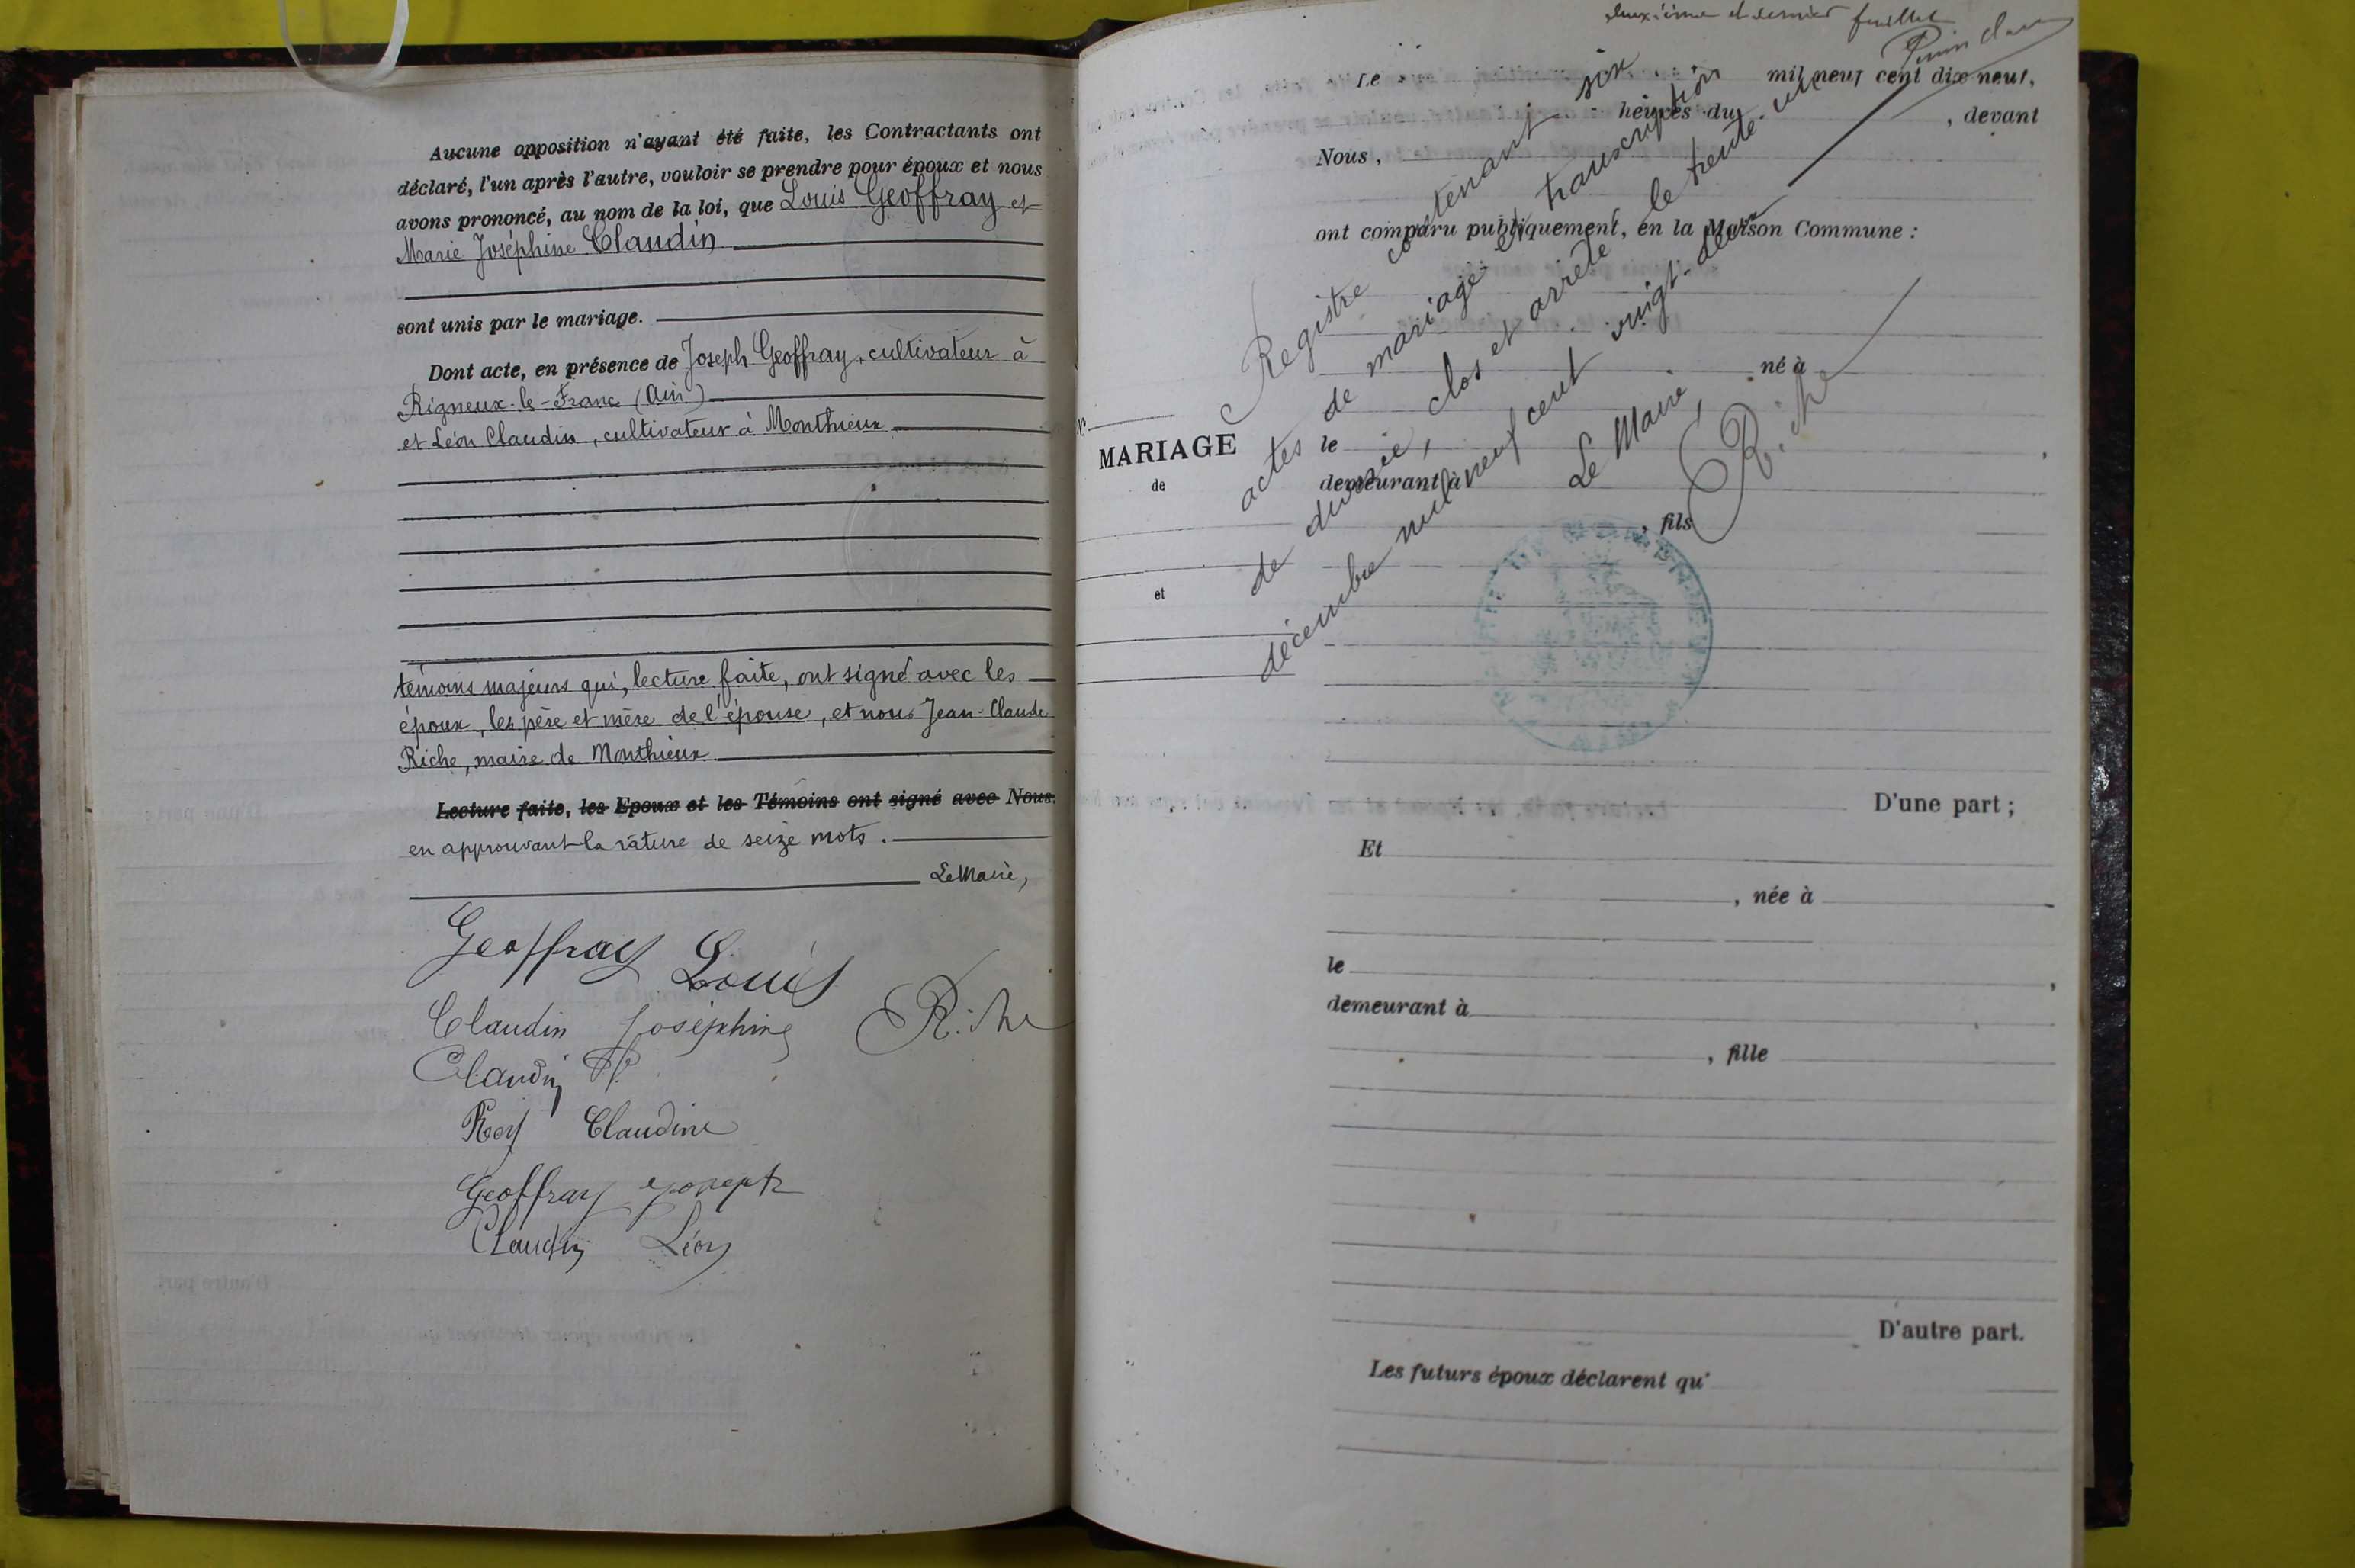 Aucune opposition n'ayant été faite, les Contractants ont
déclaré, l'un après l'autre, vouloir se prendre pour époux et nous
avons prononcé, au nom de la loi, que Louis Geoffray et
Marie Joséphine Claudin
sont unis par le mariage.
Dont acte, en présence de Joseph Geoffray, cultivateur à
Rigneux-le-Franc (Ain)
et Léon Claudin, cultivateur à Monthieux
témoins majeurs qui, lecture faite, ont signé avec les
époux, les père et mère de l'épouse, et nous Jean-Claude
Riche, maire de Monthieux
Lecture faite, les Epoux et les Témoins ont signé avec Nous.
en approuvant la rature de seize mots.
Le Maire,
Geoffray Louis
Claudin Joséphine Riche
Claudin
Rey Claudine
Geoffray Joseph
Claudin Léon
deuxième et dernier feuillet
Le mil neuf cent dix neuf,
heures du , devant
Nous,
ont comparu publiquement, en la Maison Commune :
Registre contenant six
actes de mariage et transcription
de divorce, clos et arrêté le trente-un
décembre mil neuf cent vingt-deux
Le Maire,
Riche
né à
MARIAGE
de
et
le
demeurant à
, fils
D'une part ;
Et
, née à
le ,
demeurant à
, fille
D'autre part.
Les futurs époux déclarent qu'